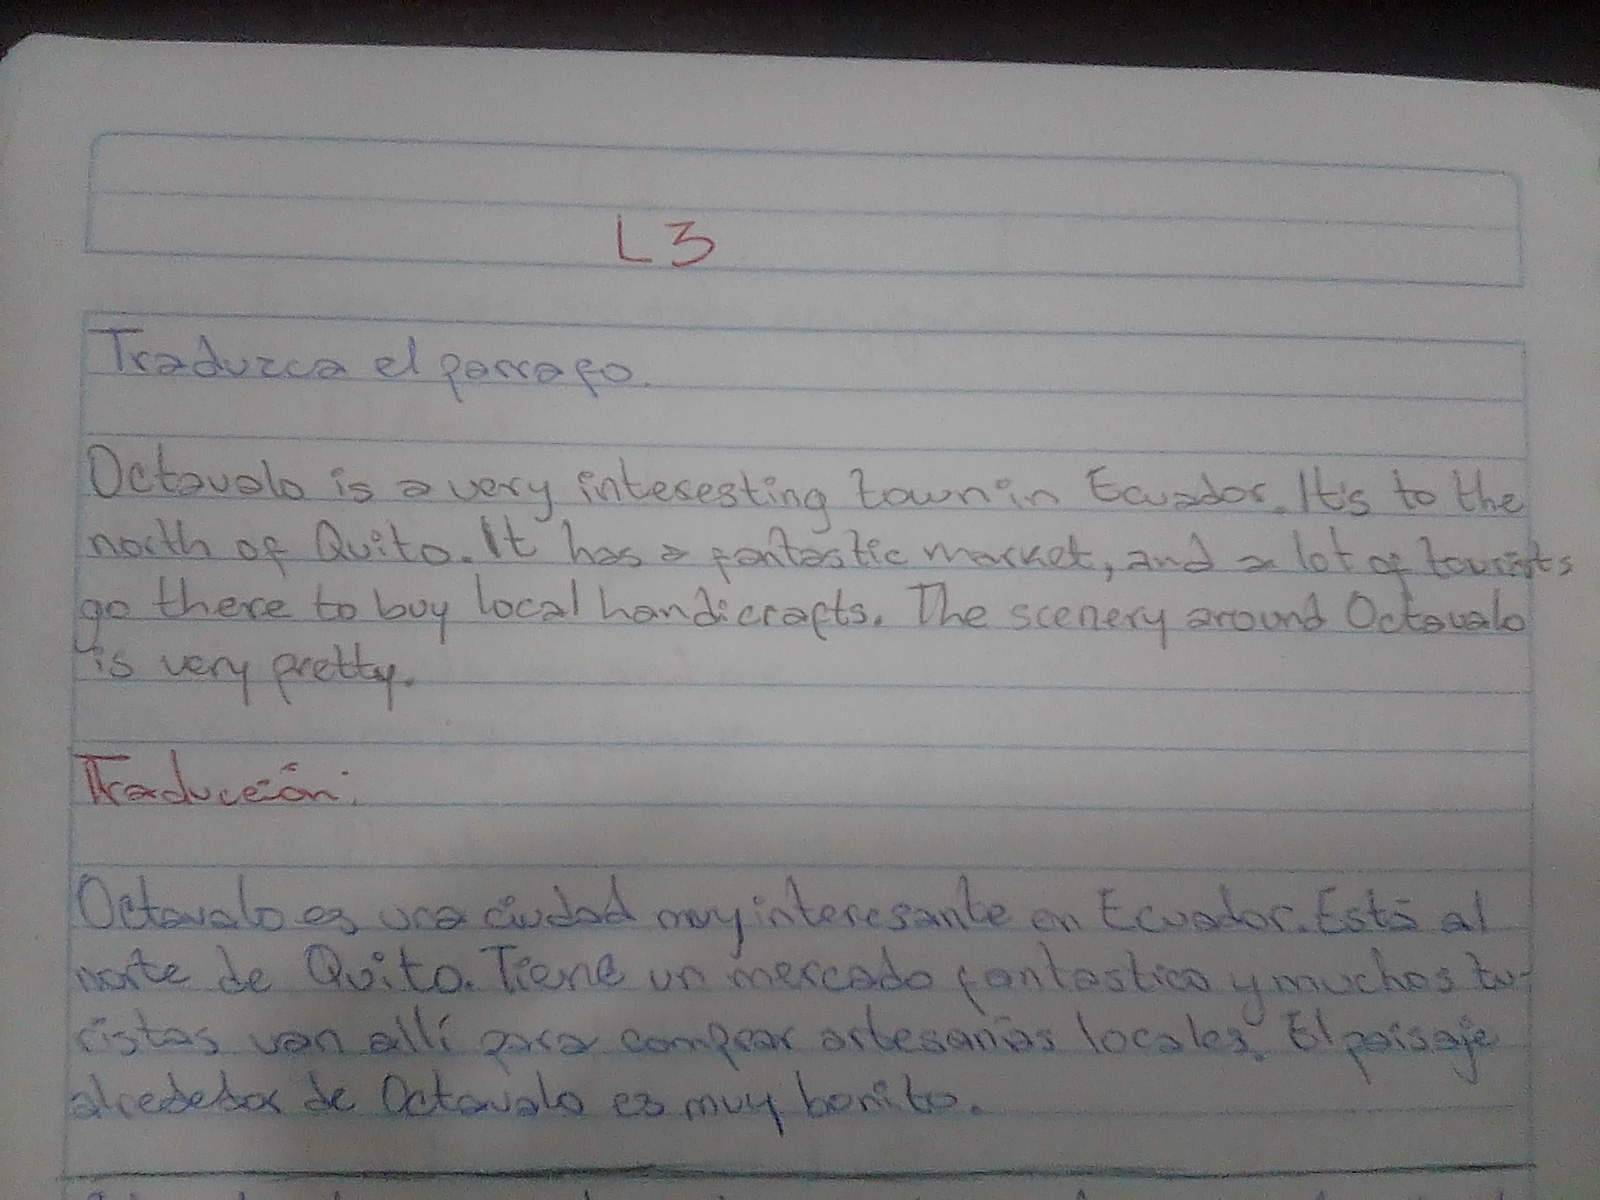 L3
Traduzca el parrafo.
Octavalo is a very interesting town in Ecuador. It's to the
north of Quito. It has a fantastic market, and a lot of tourists
go there to buy local handicrafts. The scenery around Octavalo
is very pretty.
Traducción:
Octavalo es una ciudad muy interesante en Ecuador. Está al
norte de Quito. Tiene un mercado fantastico y muchos tu-
ristas van allí para comprar artesanías locales. El paisaje
alrededor de Octavalo es muy bonito.